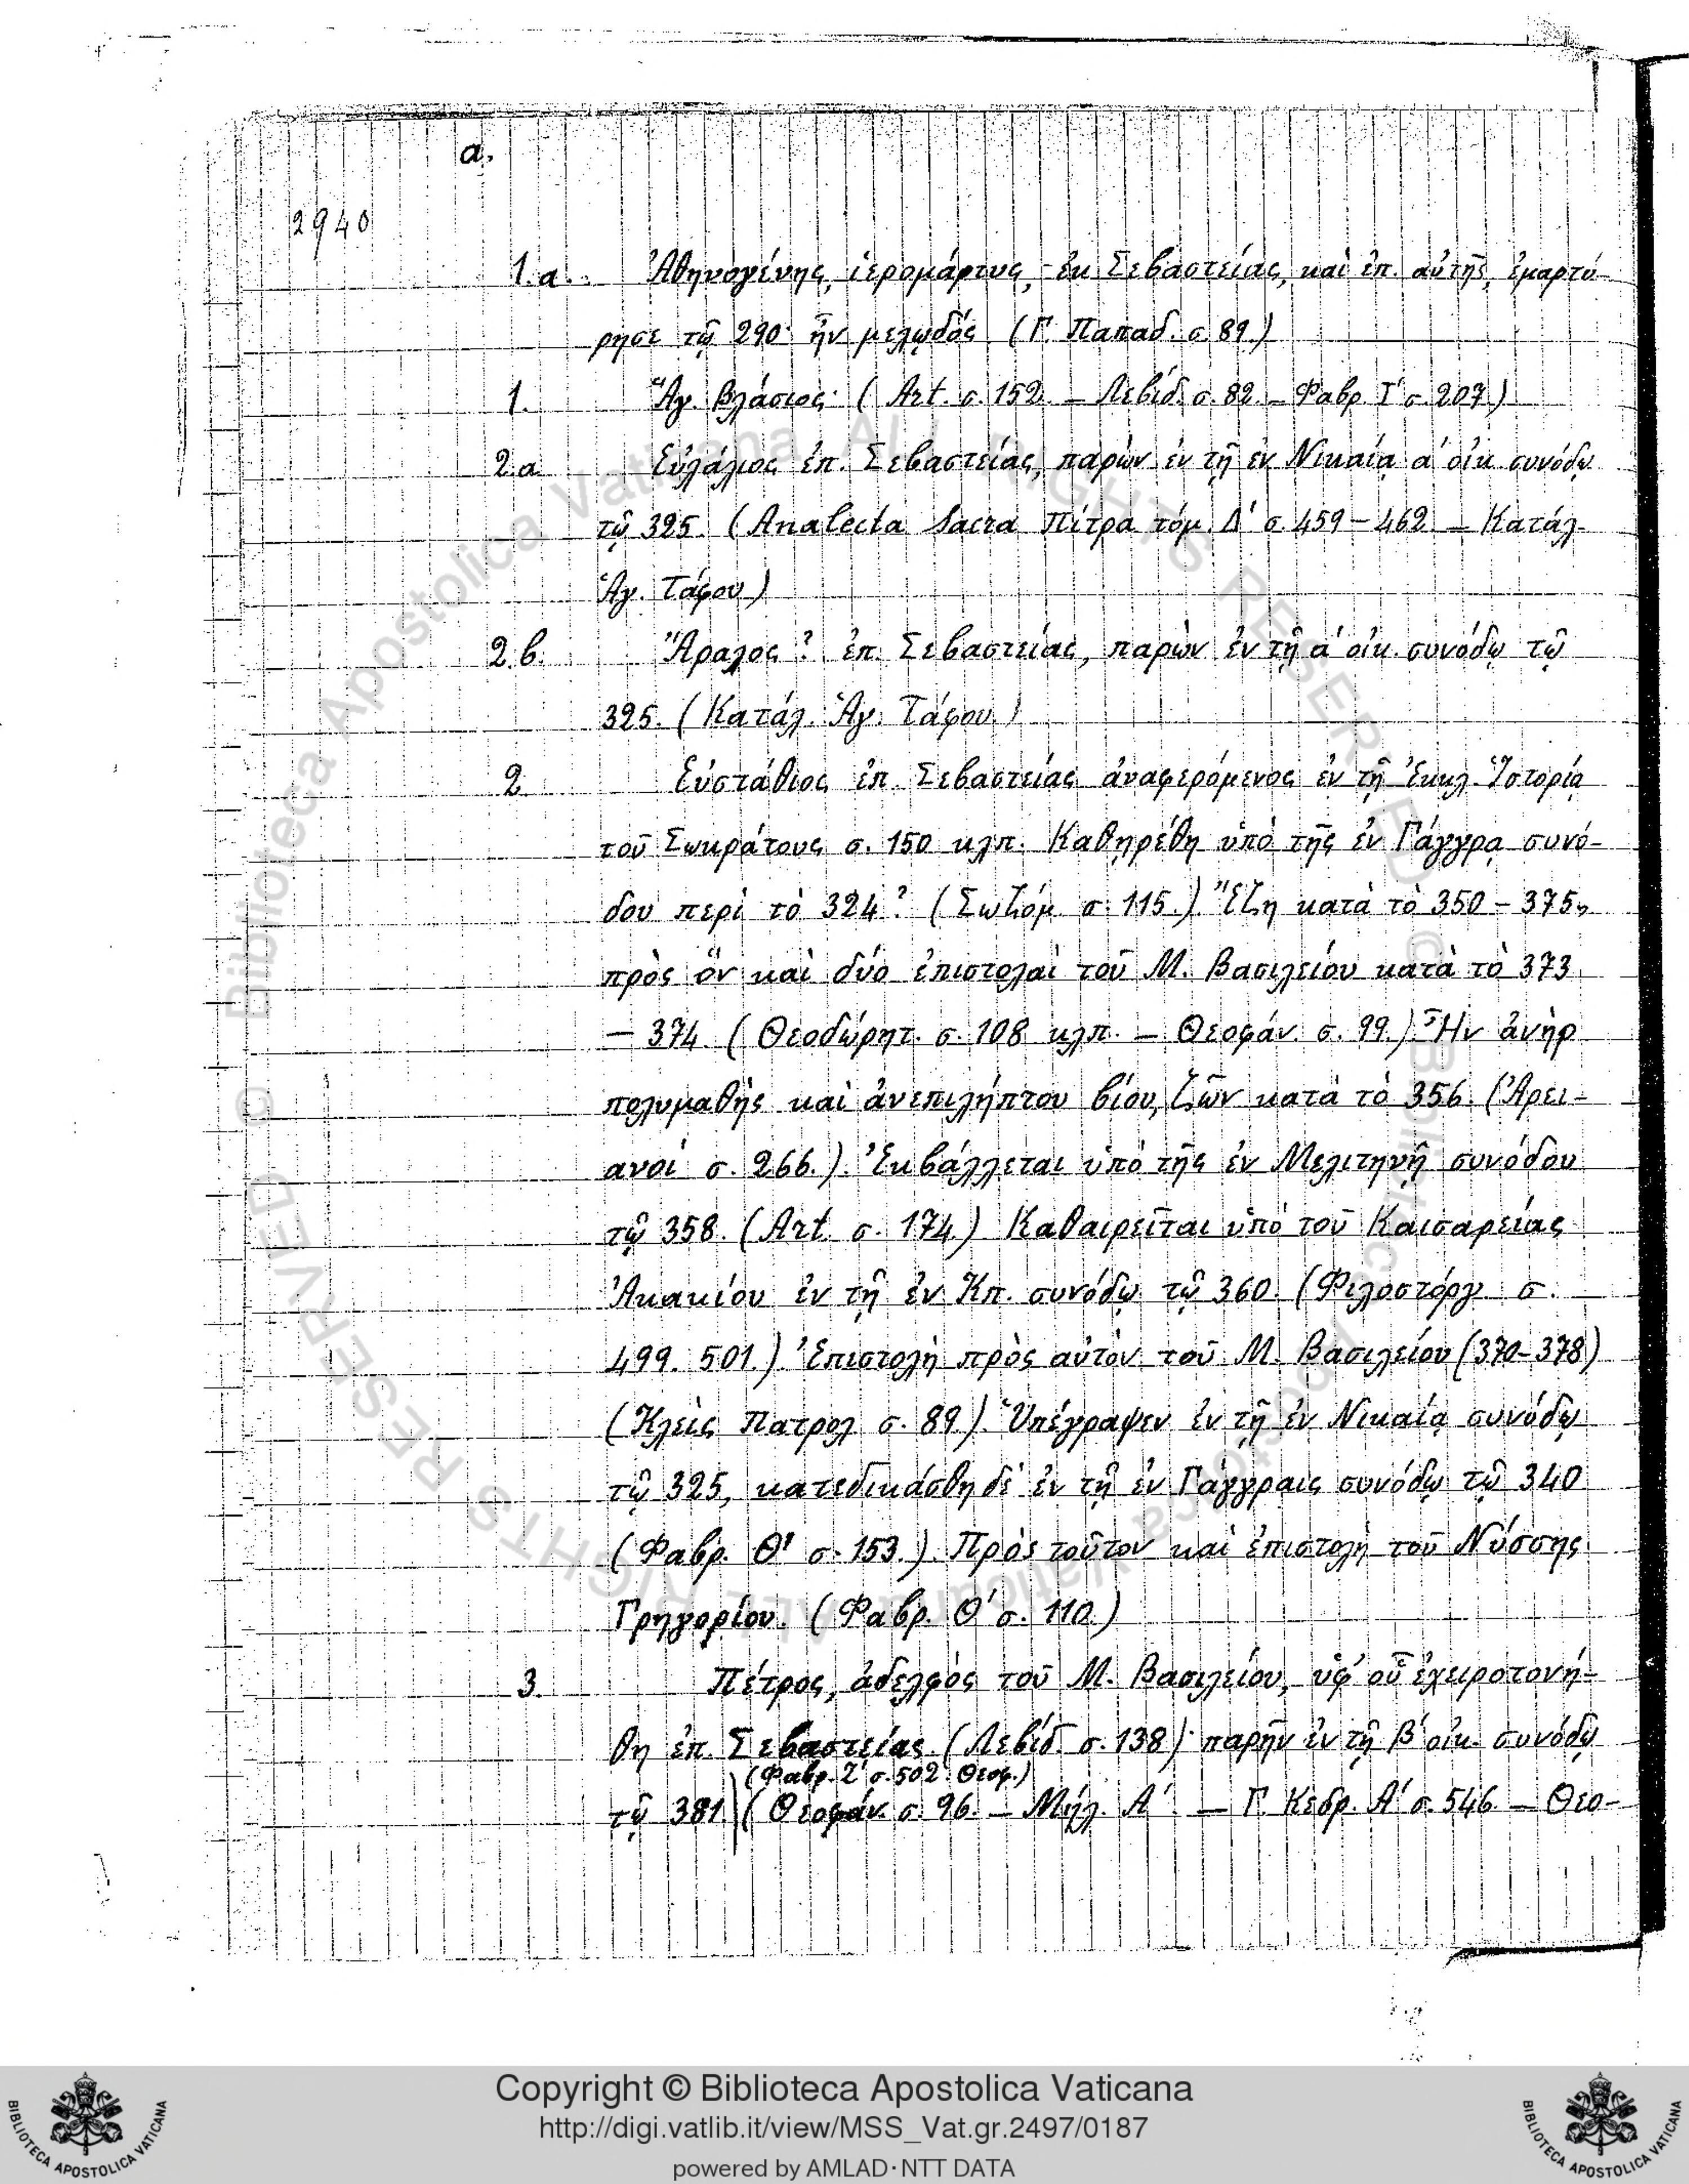 α.
2940
1.α. Ἀθηνογένης, ἱερομάρτυς, ἐκ Σεβαστείας, καὶ ἐπ. αὐτῆς, ἐμαρτύ-
ρησε τῷ 290· ἦν μελῳδός (Γ. Παπαδ. σ. 89.)
1. Ἅγ. Βλάσιος· (Art. σ. 152. – Λεβίδ. σ. 82. – Φαβρ. Ι' σ. 207.)
2.α Εὐλάλιος ἐπ. Σεβαστείας, παρὼν ἐν τῇ ἐν Νικαίᾳ α' οἰκ. συνόδῳ
τῷ 325. (Analecta Sacra Πίτρα τόμ. Δ' σ. 459 – 462. – Κατάλ.
Ἁγ. Τάφου)
2.b. Ἄραλος? ἐπ. Σεβαστείας, παρὼν ἐν τῇ α' οἰκ. συνόδῳ τῷ
325. (Κατάλ. Ἁγ. Τάφου.)
2 Εὐστάθιος ἐπ. Σεβαστείας ἀναφερόμενος ἐν τῇ Ἐκκλ. Ἱστορίᾳ
τοῦ Σωκράτους σ. 150 κλπ. Καθῃρέθη ὑπὸ τῆς ἐν Γάγγρᾳ συνό-
δου περὶ τὸ 324? (Σωζόμ. σ. 115.) Ἔζη κατὰ τὸ 350 – 375,
πρὸς ὃν καὶ δύο ἐπιστολαὶ τοῦ Μ. Βασιλείου κατὰ τὸ 373
– 374. (Θεοδώρητ. σ. 108 κλπ. – Θεοφάν. σ. 99.) Ἦν ἀνὴρ
πολυμαθὴς καὶ ἀνεπιλήπτου βίου, ζῶν κατὰ τὸ 356. (Ἀρει-
ανοί σ. 266.). Ἐκβάλλεται ὑπὸ τῆς ἐν Μελιτηνῇ συνόδου
τῷ 358. (Art. σ. 174.) Καθαιρεῖται ὑπὸ τοῦ Καισαρείας
Ἀκακίου ἐν τῇ ἐν Κπ. συνόδῳ τῷ 360. (Φιλοστόργ. σ.
499. 501.) Ἐπιστολὴ πρὸς αὐτὸν τοῦ Μ. Βασιλείου (370-378)
(Κλεὶς Πατρολ σ. 89.). Ὑπέγραψεν ἐν τῇ ἐν Νικαίᾳ συνόδῳ
τῷ 325, κατεδικάσθη δὲ ἐν τῇ ἐν Γάγγραις συνόδῳ τῷ 340
(Φαβρ. Θ' σ. 153.). Πρὸς τοῦτον καὶ ἐπιστολὴ τοῦ Νύσσης
Γρηγορίου. (Φαβρ. Θ' σ. 110.)
3. Πέτρος, ἀδελφὸς τοῦ Μ. Βασιλείου, ὑφ' οὗ ἐχειροτονή-
θη ἐπ. Σεβαστείας. (Λεβίδ. σ. 138)· παρῆν ἐν τῇ Β' οἰκ. συνόδῳ
(Φαβρ. Ζ' σ. 502. Θεοφ.)
τῷ 381. (Θεοφάν. σ. 96. – Μήλ. Α'. – Γ. Κεδρ. Α' σ. 546 – Θεο-
© Biblioteca Apostolica Vaticana. ALL RIGHTS RESERVED
Copyright © Biblioteca Apostolica Vaticana
http://digi.vatlib.it/view/MSS_Vat.gr.2497/0187
powered by AMLAD·NTT DATA
BIBLIOTECA APOSTOLICA VATICANA
BIBLIOTECA APOSTOLICA VATICANA